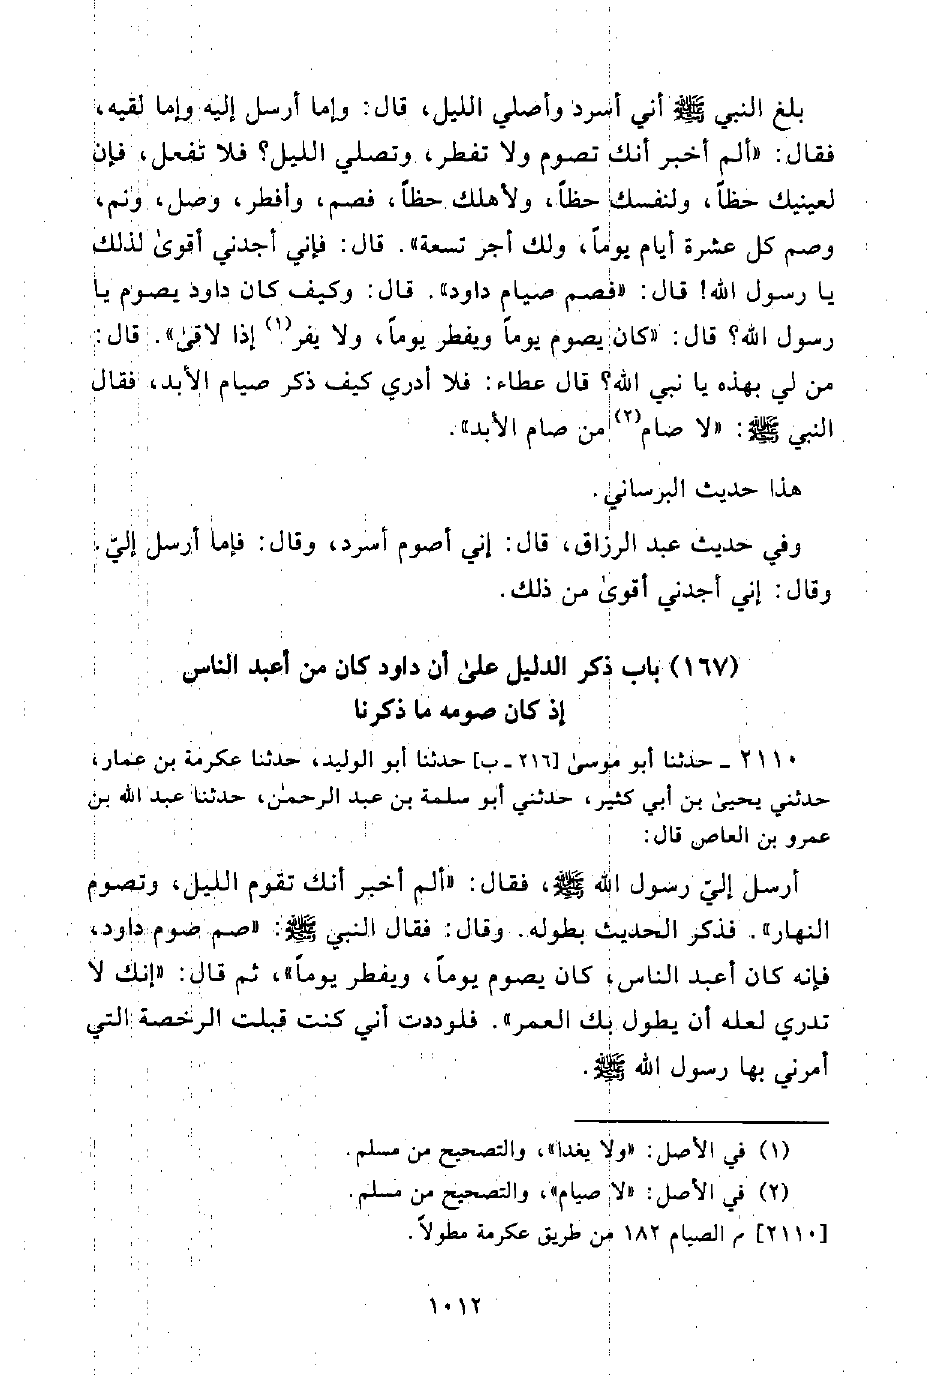 بلغ النبي ﷺ أني أسرد وأصلي الليل، قال: وإما أرسل إليه وإما لقيه،
فقال: «ألم أخبر أنك تصوم ولا تفطر، وتصلي الليل؟ فلا تفعل، فإن
لعينيك حظاً، ولنفسك حظاً، ولأهلك حظاً، فصم، وأفطر، وصل، ونم،
وصم كل عشرة أيام يوماً، ولك أجر تسعة». قال: فإني أجدني أقوىٰ لذلك
يا رسول الله! قال: «فصم صيام داود». قال: وكيف كان داود يصوم يا
رسول الله؟ قال: «كان يصوم يوماً ويفطر يوماً، ولا يفر(١) إذا لاقىٰ». قال:
من لي بهذه يا نبي الله؟ قال عطاء: فلا أدري كيف ذكر صيام الأبد، فقال
النبي ﷺ: «لا صام(٢) من صام الأبد».
هذا حديث البرساني.
وفي حديث عبد الرزاق، قال: إني أصوم أسرد، وقال: فإما أرسل إليّ.
وقال: إني أجدني أقوىٰ من ذلك.
(١٦٧) باب ذكر الدليل علىٰ أن داود كان من أعبد الناس
إذ كان صومه ما ذكرنا
٢١١٠ ـ حدثنا أبو موسىٰ [٢١٦ ـ ب] حدثنا أبو الوليد، حدثنا عكرمة بن عمار،
حدثني يحيىٰ بن أبي كثير، حدثني أبو سلمة بن عبد الرحمٰن، حدثنا عبد الله بن
عمرو بن العاص قال:
أرسل إليّ رسول الله ﷺ، فقال: «ألم أخبر أنك تقوم الليل، وتصوم
النهار». فذكر الحديث بطوله. وقال: فقال النبي ﷺ: «صم صوم داود،
فإنه كان أعبد الناس، كان يصوم يوماً، ويفطر يوماً»، ثم قال: «إنك لا
تدري لعله أن يطول بك العمر». فلوددت أني كنت قبلت الرخصة التي
أمرني بها رسول الله ﷺ.
(١) في الأصل: «ولا يغدا»، والتصحيح من مسلم.
(٢) في الأصل: «لا صيام»، والتصحيح من مسلم.
[٢١١٠] م الصيام ١٨٢ من طريق عكرمة مطولاً.
١٠١٢